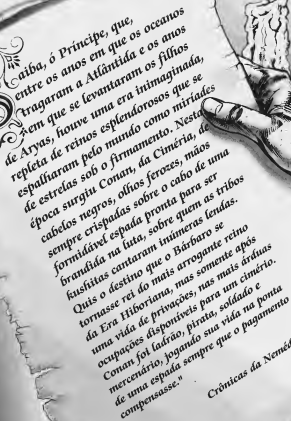 Saiba, ó Príncipe, que,
entre os anos em que os oceanos
tragaram a Atlântida e os anos
em que se levantaram os filhos
de Aryas, houve uma era inimaginada,
repleta de reinos esplendorosos que se
espalharam pelo mundo como miríades
de estrelas sob o firmamento. Nesta
época surgiu Conan, da Ciméria, de
cabelos negros, olhos ferozes, mãos
sempre crispadas sobre o cabo de uma
formidável espada pronta para ser
brandida na luta, sobre quem as tribos
kushitas cantaram inúmeras lendas.
Quis o destino que o Bárbaro se
tornasse rei do mais arrogante reino
da Era Hiboriana, mas somente após
uma vida de privações, nas mais árduas
ocupações disponíveis para um cimério.
Conan foi ladrão, pirata, soldado e
mercenário, jogando sua vida na ponta
de uma espada sempre que o pagamento
compensasse."
Crônicas da